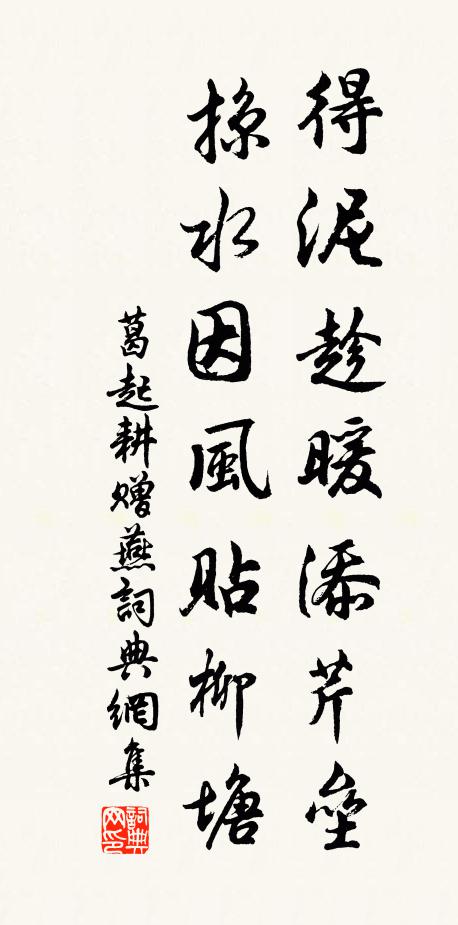 得泥趁暖添芹壘
掠水因風貼柳塘
葛起耕贈燕詞典網集
詞典网印